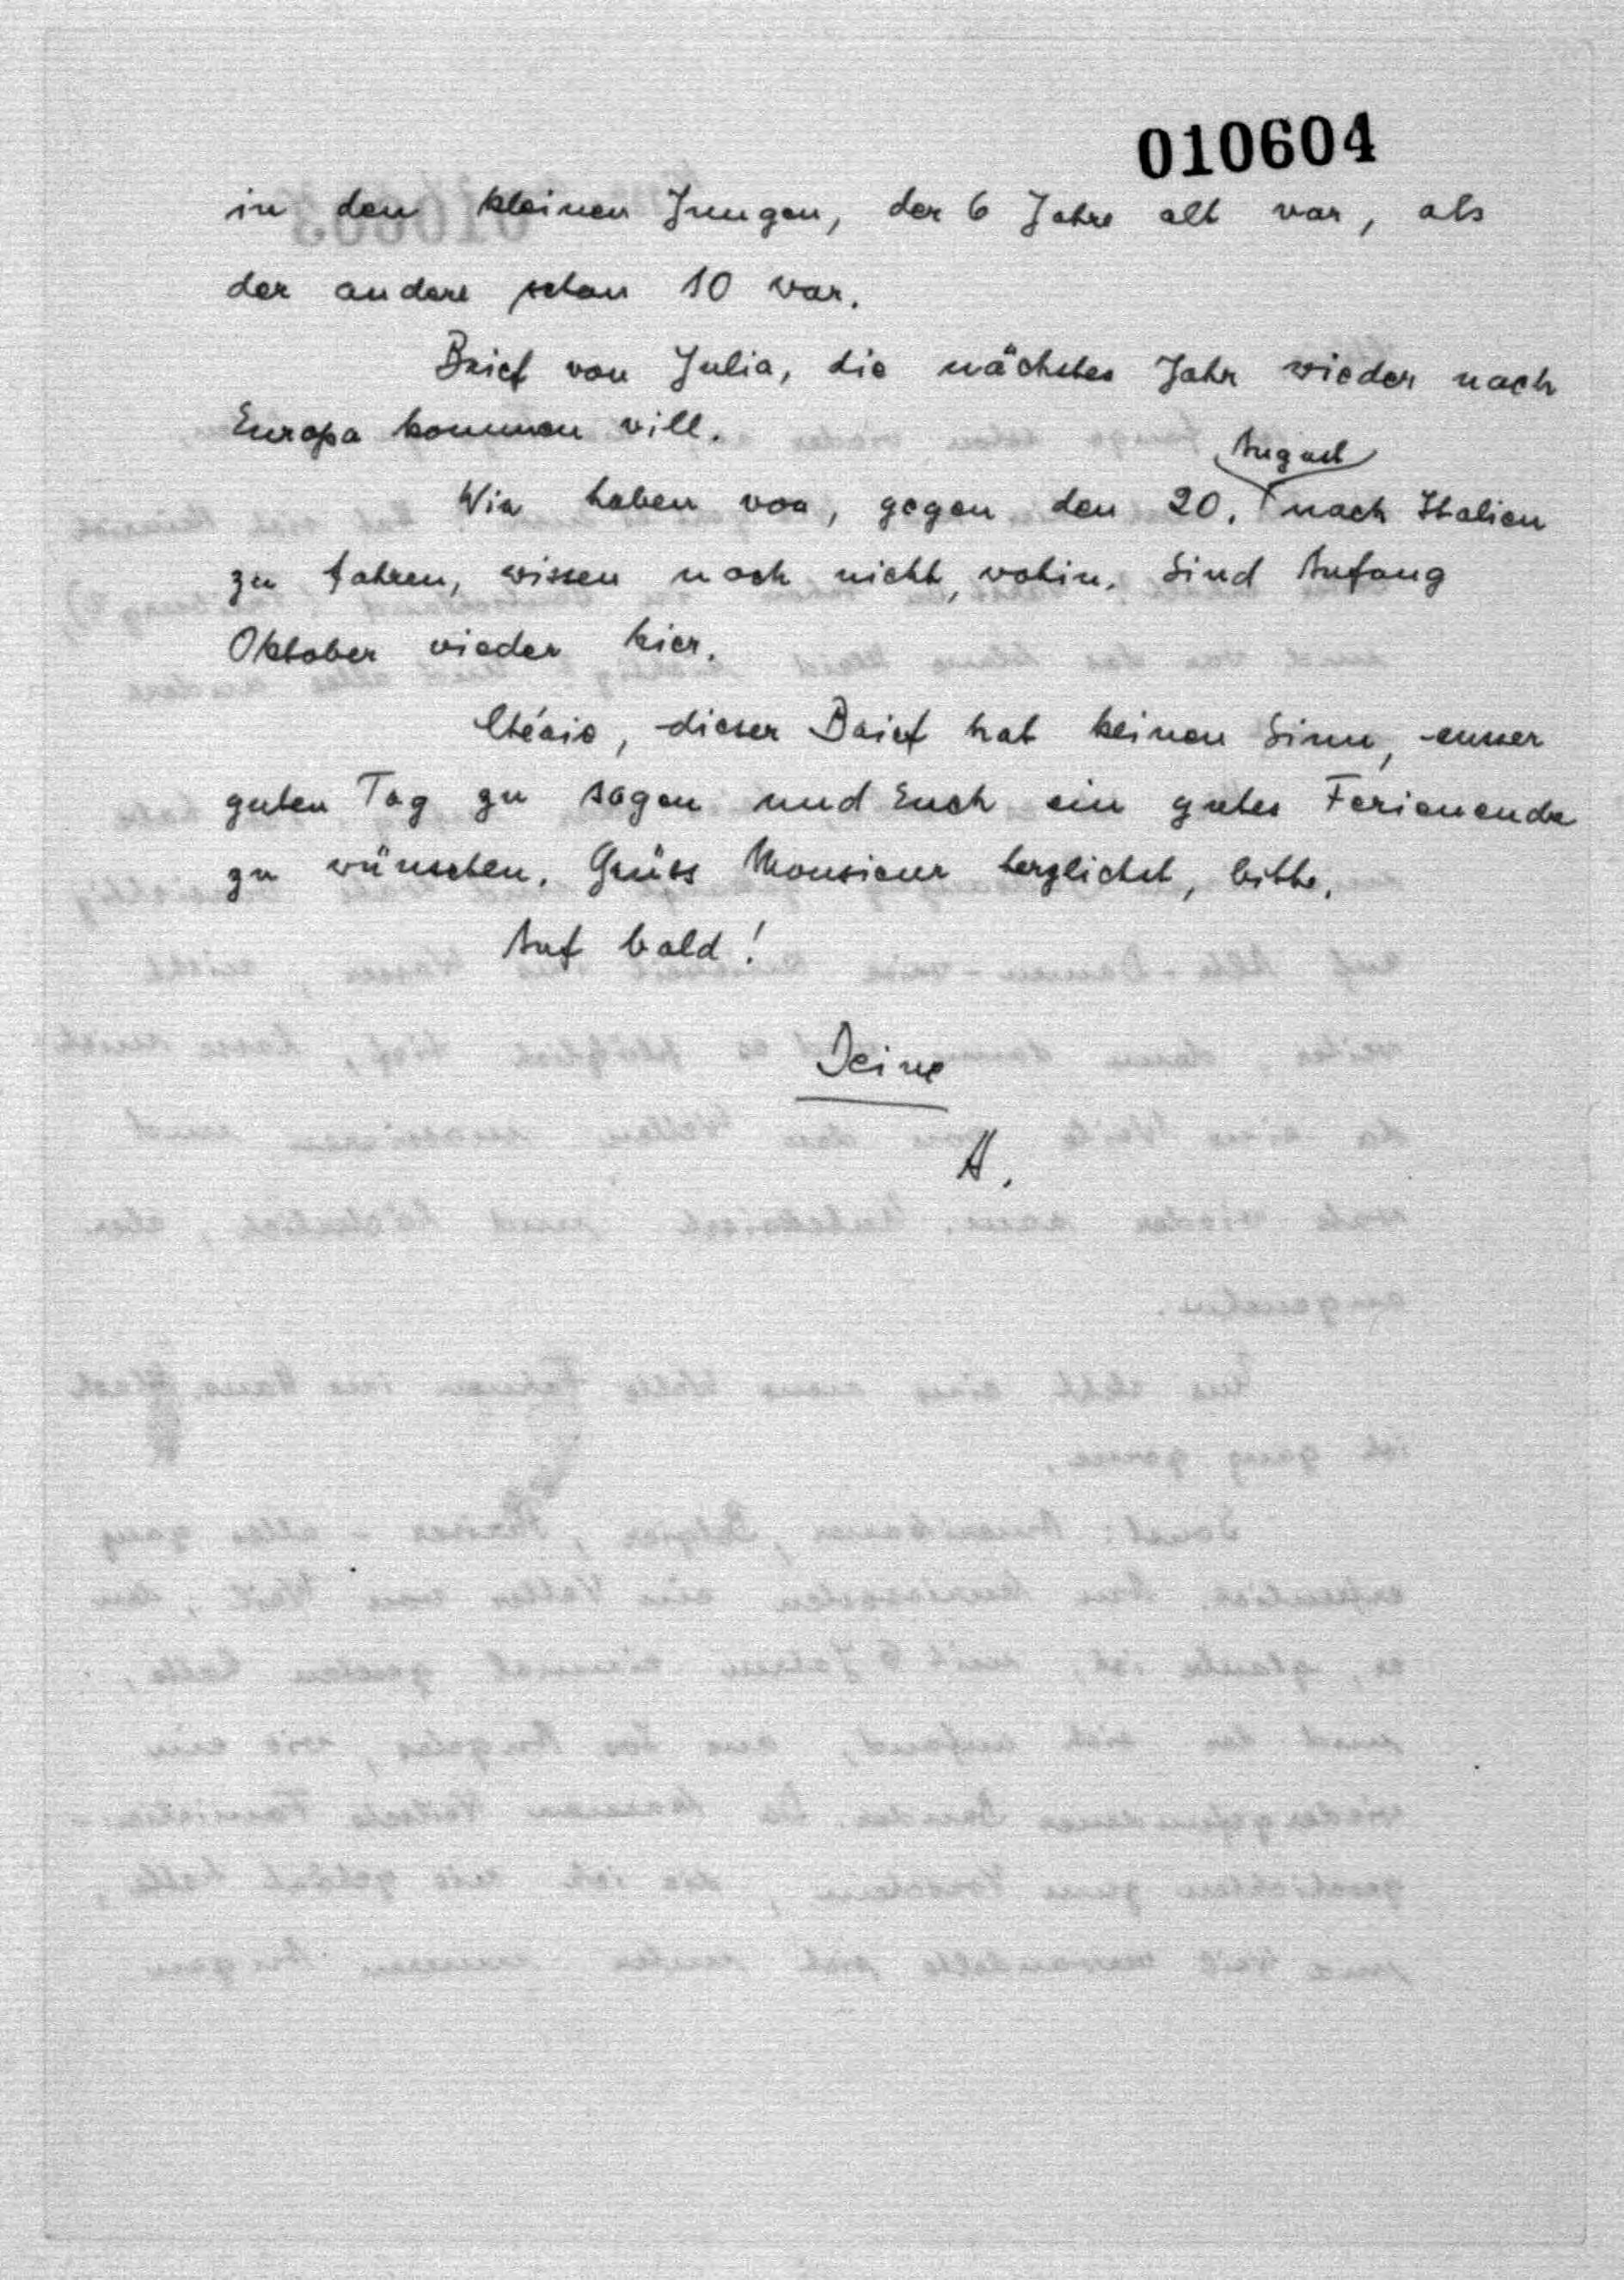 010604
in den kleinen Jungen, der 6 Jahre alt war, als
der andere schon 10 war.
Brief von Julia, die nächstes Jahr wieder nach
Europa kommen will.
August
Wir haben vor, gegen den 20. nach Italien
zu fahren, wissen noch nicht, wohin. Sind Anfang
Oktober wieder hier.
Chérie, dieser Brief hat keinen Sinn, ausser
guten Tag zu sagen und Euch ein gutes Ferienende
zu wünschen. Grüss Monsieur herzlichst, bitte.
Auf bald!
Deine
A.